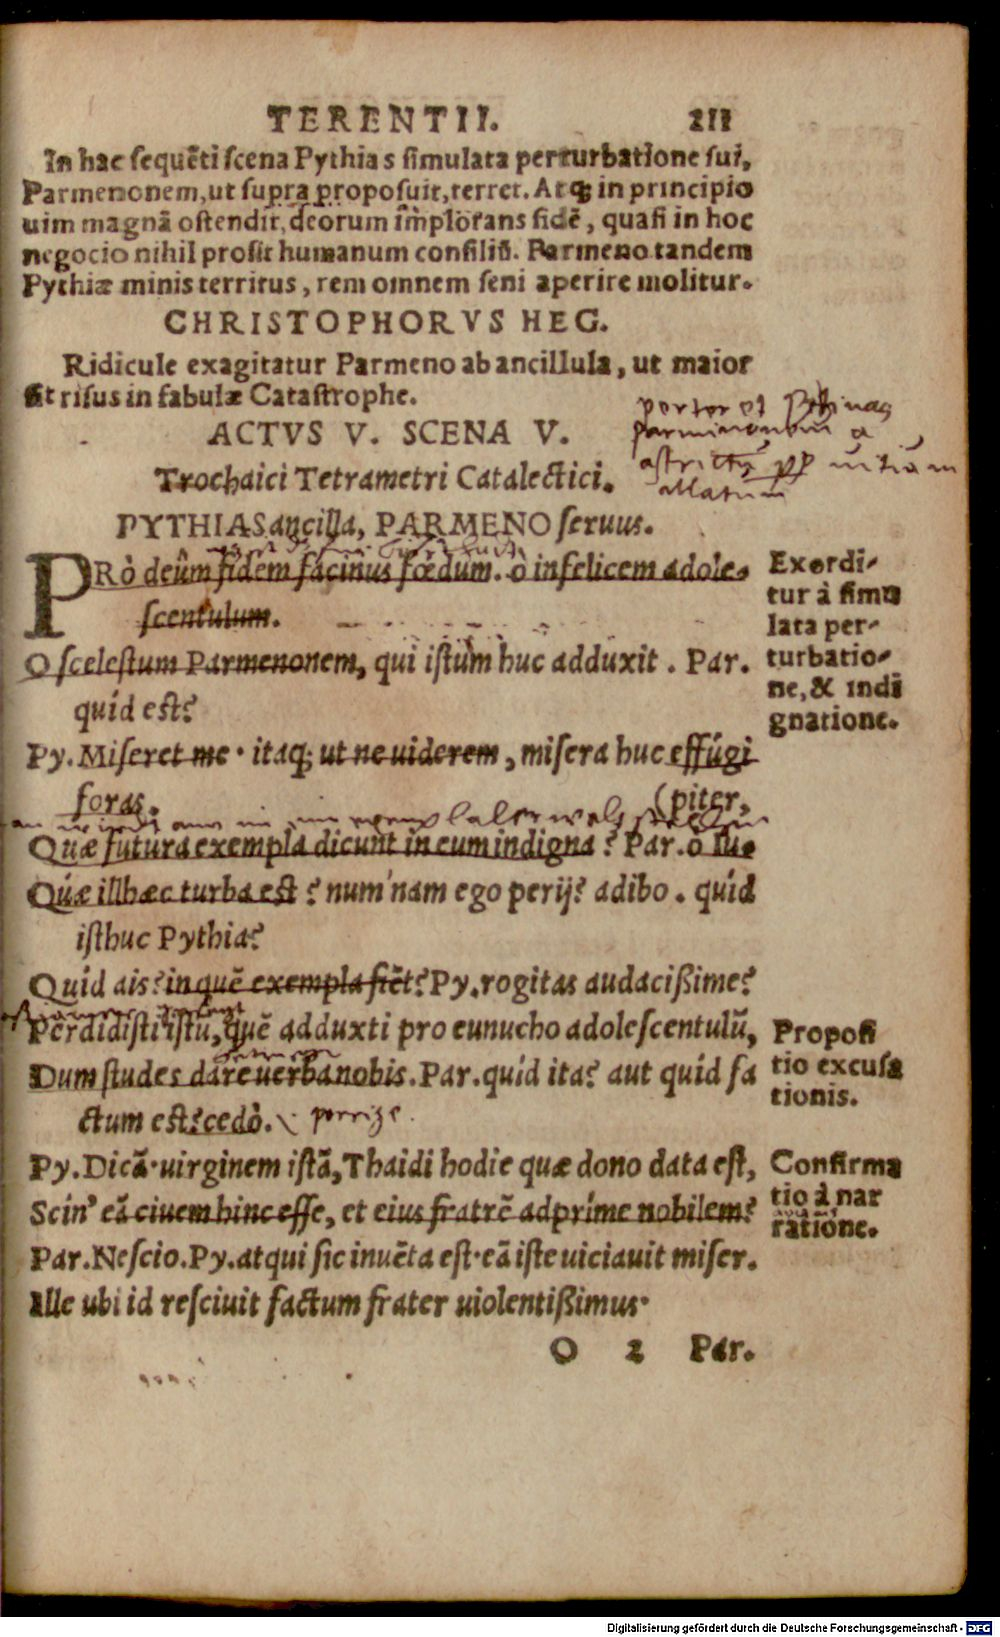 TERENTII. 211
In hac sequẽti scena Pythias simulata perturbatione sui,
Parmenonem, ut supra proposuit, terret. Atq; in principio
uim magnã ostendit, deorum implorans fidẽ, quasi in hoc
negocio nihil prosit humanum consiliũ. Parmeno tandem
Pythiæ minis territus, rem omnem seni aperire molitur.
CHRISTOPHORVS HEG.
Ridicule exagitatur Parmeno ab ancillula, ut maior
sit risus in fabulæ Catastrophe.
ACTVS V. SCENA V.
Trochaici Tetrametri Catalectici.
PYTHIAS ancilla, PARMENO seruus.
PRò deûm fidem facinus fœdum. o infelicem adole-
scentulum.
O scelestum Parmenonem, qui istum huc adduxit. Par.
quíd est?
Py. Miseret me· itaq; ut ne uiderem, misera huc effúgi
foras. (piter,
Quæ futura exempla dicunt in eum indigna? Par. o Iu-
Quæ illhæc turba est? num nam ego perij? adibo. quíd
isthuc Pythia?
Quíd ais? in quẽ exempla fiẽt? Py. rogitas audacißime?
Perdidisti istũ, quẽ adduxti pro eunucho adolescentulũ,
Dum studes dare uerba nobis. Par. quíd ita? aut quíd fa
ctum est? cedò. porrige
Py. Dicã· uirginem istã, Thaidi hodie quæ dono data est,
Scin' eã ciuem hinc esse, et eius fratrẽ adpríme nobilem?
Par. Nescio. Py. atqui sic inuẽta est· eã iste uiciauit miser.
Ille ubi id resciuit factum frater uiolentißimus·
O 2 Par.
Exordi-
tur à simu
lata per-
turbatio-
ne, & indi
gnatione.
Proposi
tio excusa
tionis.
Confirma
tio à nar
ratione.
Digitalisierung gefördert durch die Deutsche Forschungsgemeinschaft - DFG